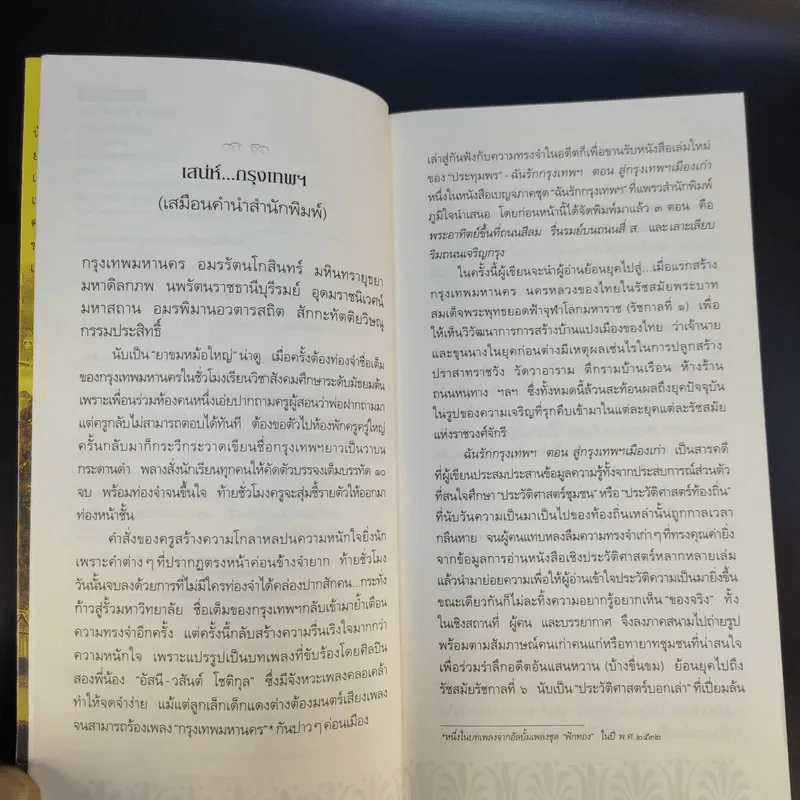 เสน่ห์...กรุงเทพฯ
(เสมือนคำนำสำนักพิมพ์)
กรุงเทพมหานคร อมรรัตนโกสินทร์ มหินทรายุธยา
มหาดิลกภพ นพรัตนราชธานีบุรีรมย์ อุดมราชนิเวศน์
มหาสถาน อมรพิมานอวตารสถิต สักกะทัตติยวิษณุ
กรรมประสิทธิ์
นับเป็น “ยาขมหม้อใหญ่” น่าดู เมื่อครั้งต้องท่องจำชื่อเต็ม
ของกรุงเทพมหานครในชั่วโมงเรียนวิชาสังคมศึกษาระดับมัธยมต้น
เพราะเพื่อนร่วมห้องคนหนึ่งเอ่ยปากถามครูผู้สอนว่าพ่อฝากถามมา
แต่ครูกลับไม่สามารถตอบได้ทันที ต้องขอตัวไปห้องพักครูครู่ใหญ่
ครั้นกลับมาก็กระวีกระวาดเขียนชื่อกรุงเทพฯยาวเป็นวาบน
กระดานดำ พลางสั่งนักเรียนทุกคนให้คัดตัวบรรจงเต็มบรรทัด ๑๐
จบ พร้อมท่องจำจนขึ้นใจ ท้ายชั่วโมงครูจะสุ่มชี้รายตัวให้ออกมา
ท่องหน้าชั้น
คำสั่งของครูสร้างความโกลาหลปนความหนักใจยิ่งนัก
เพราะคำต่าง ๆ ที่ปรากฏตรงหน้าค่อนข้างจำยาก ท้ายชั่วโมง
วันนั้นจบลงด้วยการที่ไม่มีใครท่องจำได้คล่องปากสักคน...กระทั่ง
ก้าวสู่รั้วมหาวิทยาลัย ชื่อเต็มของกรุงเทพฯกลับเข้ามาย้ำเตือน
ความทรงจำอีกครั้ง แต่ครั้งนี้กลับสร้างความรื่นเริงใจมากกว่า
ความหนักใจ เพราะแปรรูปเป็นบทเพลงที่ขับร้องโดยศิลปิน
สองพี่น้อง “อัสนี-วสันต์ โชติกุล” ซึ่งมีจังหวะเพลงคลอเคล้า
ทำให้จดจำง่าย แม้แต่ลูกเล็กเด็กแดงต่างต้องมนตร์เสียงเพลง
จนสามารถร้องเพลง “กรุงเทพมหานคร”* กันปาว ๆ ค่อนเมือง
เล่าสู่กันฟังกับความทรงจำในอดีตก็เพื่อขานรับหนังสือเล่มใหม่
ของ “ประทุมพร” - ฉันรักกรุงเทพฯ ตอน สู่กรุงเทพฯเมืองเก่า
หนึ่งในหนังสือเบญจภาคชุด “ฉันรักกรุงเทพฯ” ที่แพรวสำนักพิมพ์
ภูมิใจนำเสนอ โดยก่อนหน้านี้ได้จัดพิมพ์มาแล้ว ๓ ตอน คือ
พระอาทิตย์ขึ้นที่ถนนสีลม รื่นรมย์บนถนนสี่ ส. และ เลาะเลียบ
ริมถนนเจริญกรุง
ในครั้งนี้ผู้เขียนจะนำผู้อ่านย้อนยุคไปสู่...เมื่อแรกสร้าง
กรุงเทพมหานคร นครหลวงของไทยในรัชสมัยพระบาท
สมเด็จพระพุทธยอดฟ้าจุฬาโลกมหาราช (รัชกาลที่ ๑) เพื่อ
ให้เห็นวิวัฒนาการการสร้างบ้านแปงเมืองของไทย ว่าเจ้านาย
และขุนนางในยุคก่อนต่างมีเหตุผลเช่นไรในการปลูกสร้าง
ปราสาทราชวัง วัดวาอาราม ตึกรามบ้านเรือน ห้างร้าน
ถนนหนทาง ฯลฯ ซึ่งทั้งหมดนี้ล้วนสะท้อนผลถึงยุคปัจจุบัน
ในรูปของความเจริญที่รุกคืบเข้ามาในแต่ละยุคแต่ละรัชสมัย
แห่งราชวงศ์จักรี
ฉันรักกรุงเทพฯ ตอน สู่กรุงเทพฯเมืองเก่า เป็นสารคดี
ที่ผู้เขียนประสมประสานข้อมูลความรู้ทั้งจากประสบการณ์ส่วนตัว
ที่สนใจศึกษา “ประวัติศาสตร์ชุมชน” หรือ “ประวัติศาสตร์ท้องถิ่น”
ที่นับวันความเป็นมาเป็นไปของท้องถิ่นเหล่านั้นถูกกาลเวลา
กลืนหาย จนผู้คนแทบหลงลืมความทรงจำเก่า ๆ ที่ทรงคุณค่ายิ่ง
จากข้อมูลการอ่านหนังสือเชิงประวัติศาสตร์หลากหลายเล่ม
แล้วนำมาย่อยความเพื่อให้ผู้อ่านเข้าใจประวัติความเป็นมายิ่งขึ้น
ขณะเดียวกันก็ไม่ละทิ้งความอยากรู้อยากเห็น “ของจริง” ทั้ง
ในเชิงสถานที่ ผู้คน และบรรยากาศ จึงลงภาคสนามไปถ่ายรูป
พร้อมตามสัมภาษณ์คนเก่าคนแก่หรือทายาทชุมชนที่น่าสนใจ
เพื่อร่วมรำลึกอดีตอันแสนหวาน (บ้างขื่นขม) ย้อนยุคไปถึง
รัชสมัยรัชกาลที่ ๖ นับเป็น “ประวัติศาสตร์บอกเล่า” ที่เปี่ยมล้น
*หนึ่งในบทเพลงจากอัลบั้มเพลงชุด “ฟักทอง” ในปี พ.ศ. ๒๕๓๒